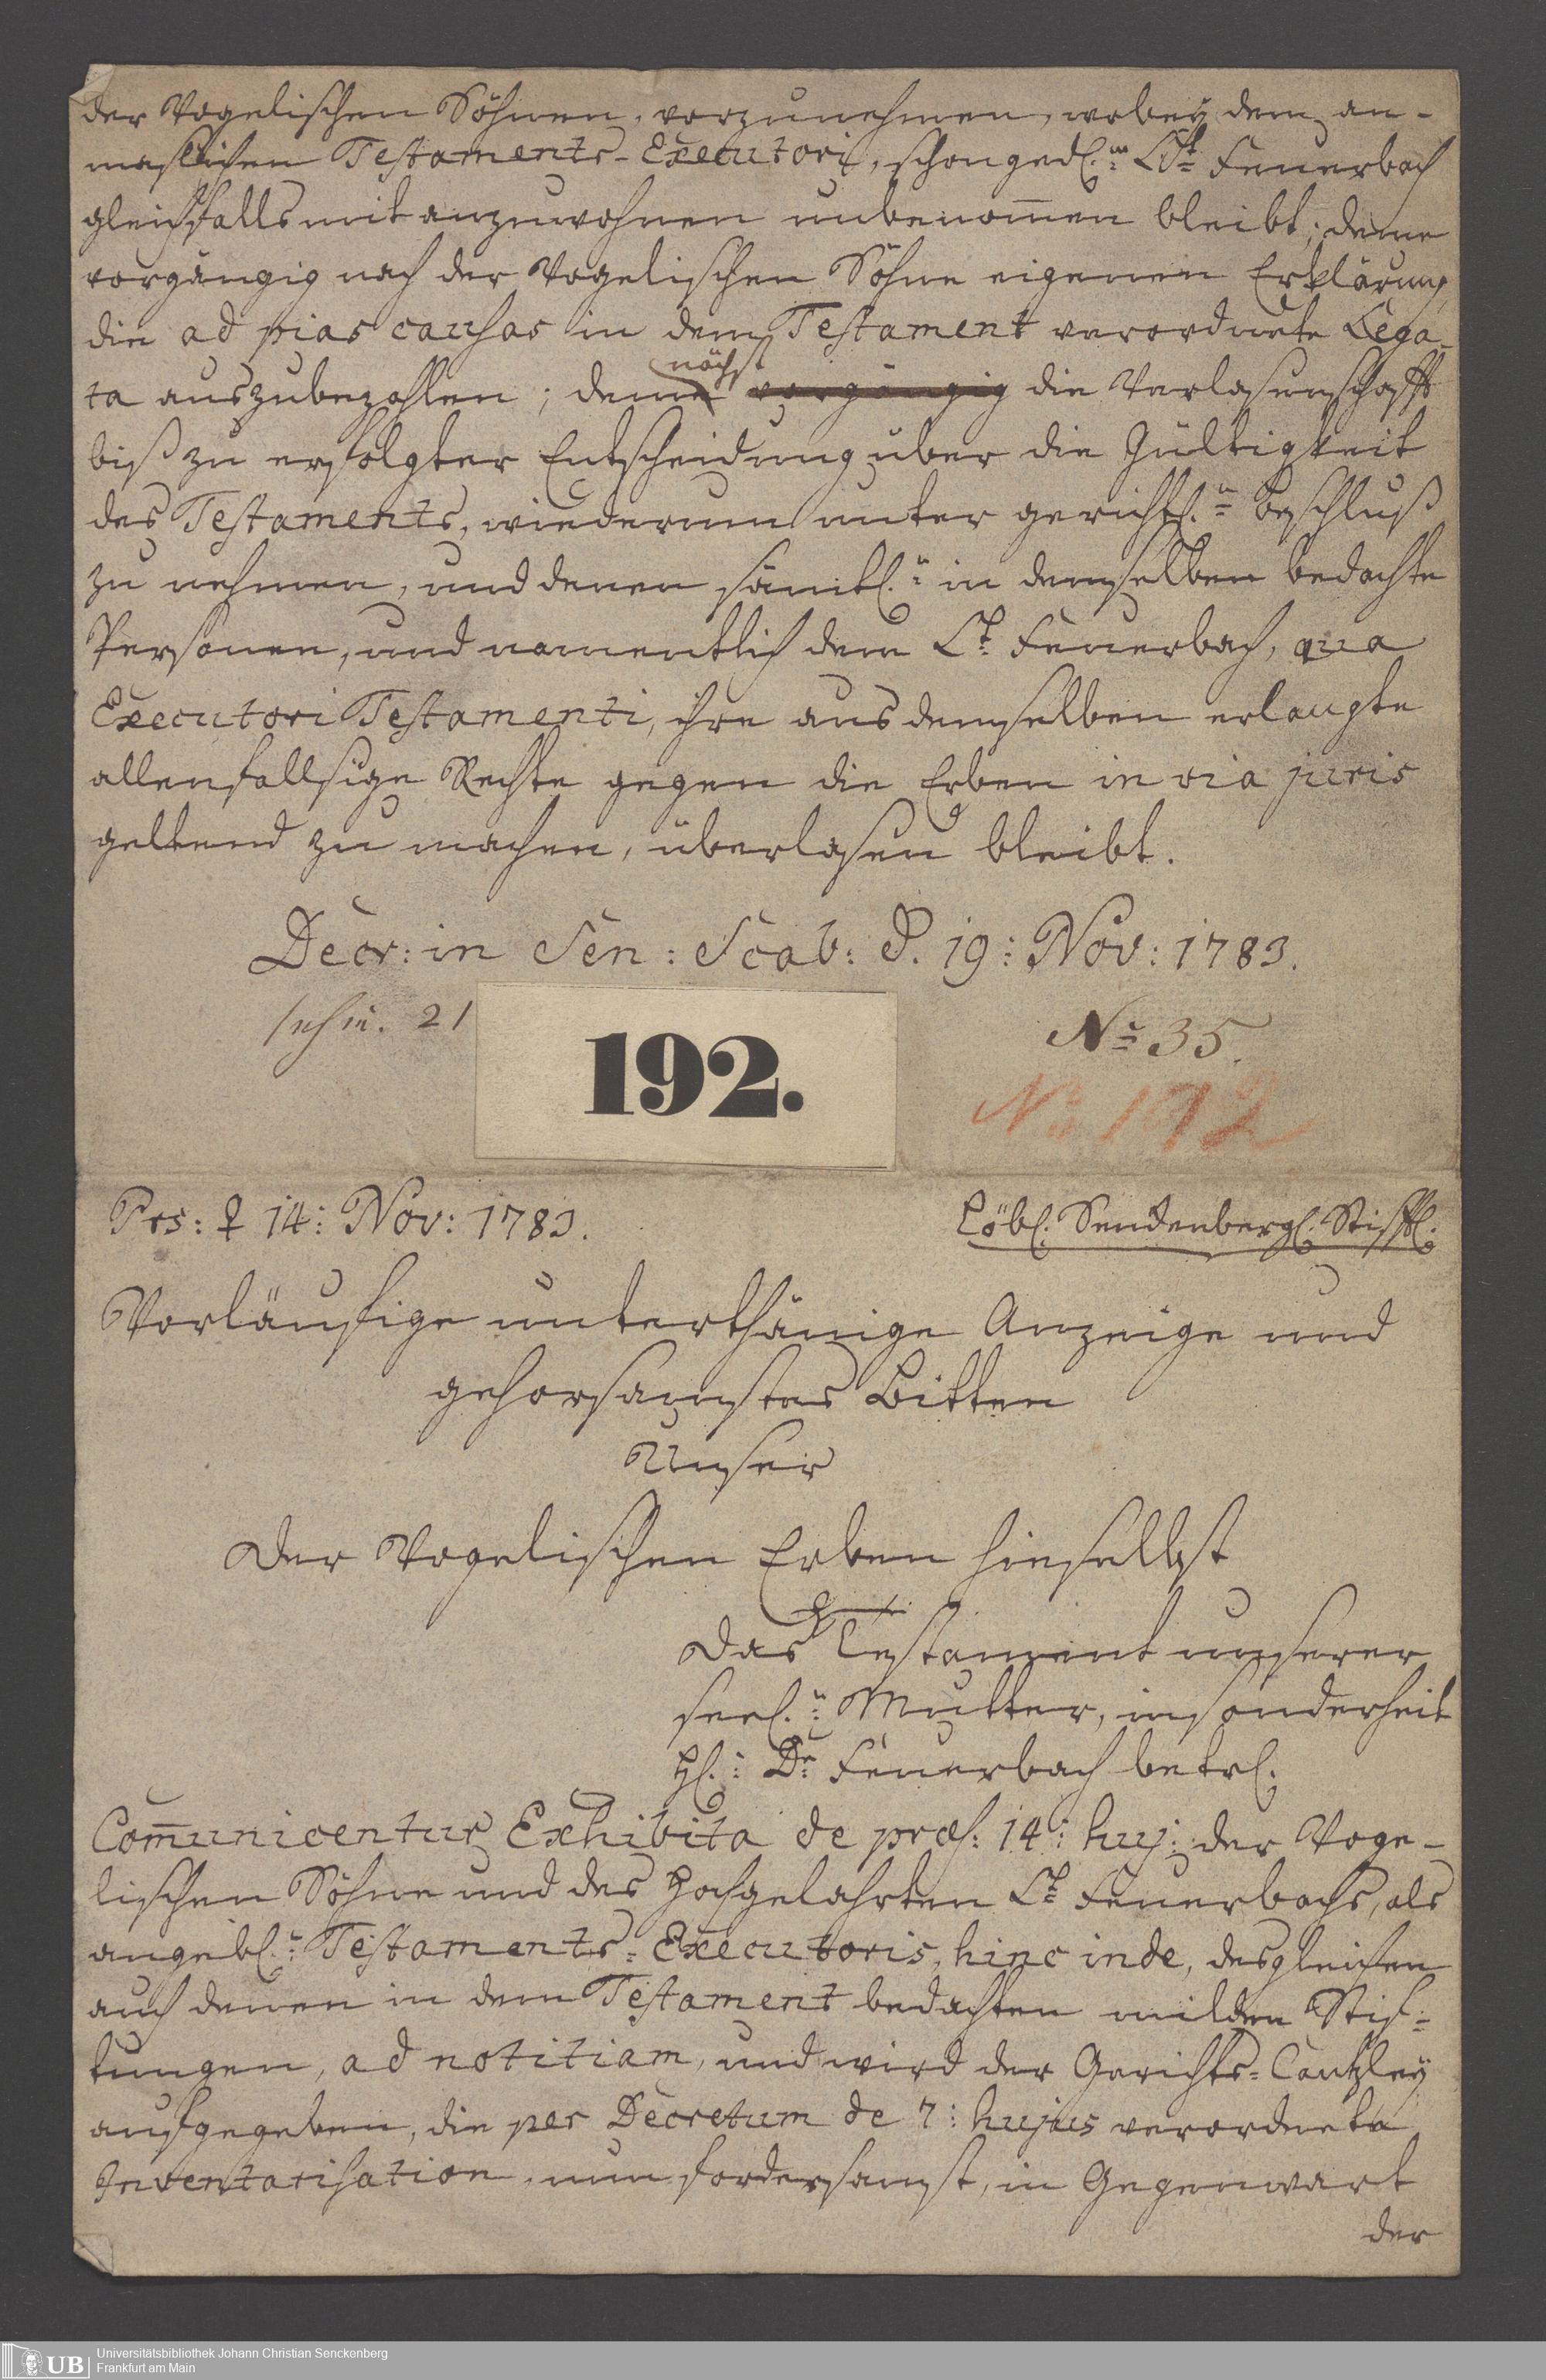 der Vogelischen Söhnen, vorzunehmen, wobey dem an-
maslichen Testaments-Executori, schongedl.m Lt. Feuerbach
gleichfalls mit anzuwohnen unbenom̅en bleibt; deme
vorgängig nach der Vogelischen Söhne eigenen Erklärung
die ad pias causas in dem Testament verordnete Lega-
ta auszubezahlen; deme nächst vorgängig die Verlasenschafft
biß zu erfolgter Entscheidung über die Gültigkeit
des Testaments, wiederum unter gerichtl.n Beschluß
zu nehmen, und denen sämtl.n in demselben bedachte
Personen, und namentlich dem Lt. Feuerbach, qua
Executori Testamenti, ihre aus demselben erlangte
allenfallsige Rechte gegen die Erben in via juris
geltend zu machen, überlasen bleibt.
Decr: in Sen: Scab: d. 19: Nov: 1783.
21
192.
No 35.
No 192
Prs: ♀ 14: Nov: 1783.
Löbl. Senckenbergl. Stifftl.
Vorläufige unterthänige Anzeige und
gehorsamstes Bitten
Unser
der Vogelischen Erben hieselbst
das Testament unserer
seel.n Mutter, insonderheit
Hl.: Dr Feuerbach betrl.
Com̅unicentur Exhibita de præs: 14: huj: der Voge-
lischen Söhne und des Hochgelahrten Lt. Feuerbachs, als
angebl.: Testaments-Executoris, hinc inde, desgleichen
auch denen in dem Testament bedachten milden Stif-
tungen, ad notitiam, und wird der Gerichts-Cantzley
aufgegeben, die per Decretum de 7: hujus verordnete
Inventarisation nun fordersamst, in Gegenwart
der
UB Universitätsbibliothek Johann Christian Senckenberg
Frankfurt am Main